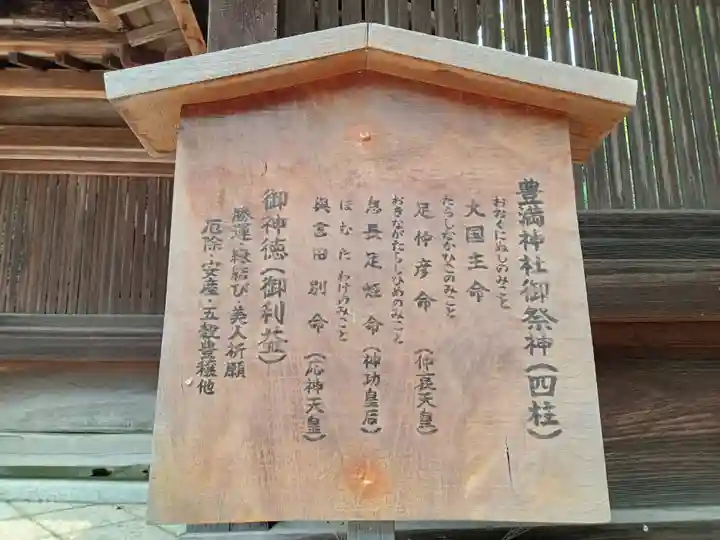 豊満神社御祭神(四柱)
おおくにぬしのみこと
大国主命
たらしなかひこのみこと
足仲彦命(仲哀天皇)
おきながたらしひめのみこと
息長足姫命(神功皇后)
ほむたわけのみこと
誉田別命(応神天皇)
御神徳(御利益)
勝運・縁結び・美人祈願
厄除・安産・五穀豊穣他